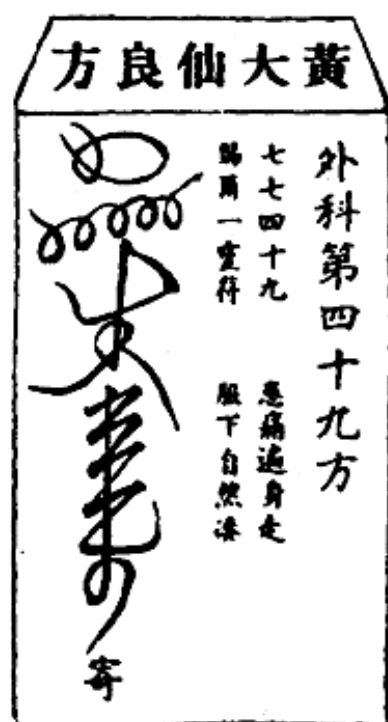 黃大仙良方
外科第四十九方
七七四十九 痛遍身走
賜爾一靈符 服下自然
寄